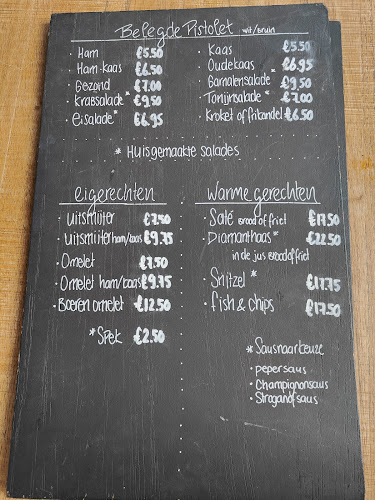 Belegde Pistolet wit/bruin
· Ham €5.50
· Ham-kaas €6.50
· Gezond €7.00
· Krabsalade* €9,50
· Eisalade* €6.95
· Kaas €5.50
· Oude kaas €6.95
· Garnalensalade* €9,50
· Tonijnsalade* €7.00
· Kroket of frikandel €6.50
* Huisgemaakte salades
eigerechten
· Uitsmijter €7.50
· Uitsmijter ham/kaas €9.75
· Omelet €7.50
· Omelet ham/kaas €9.75
· Boeren omelet €12.50
*Spek €2.50
Warme gerechten
· Saté brood of friet €17.50
· Diamanthaas* €22.50
in de jus brood of friet
· Snitzel* €17.75
· fish & chips €17.50
*Sausnaarkeuze
· peper saus
· Champignonsaus
· Stroganofsaus